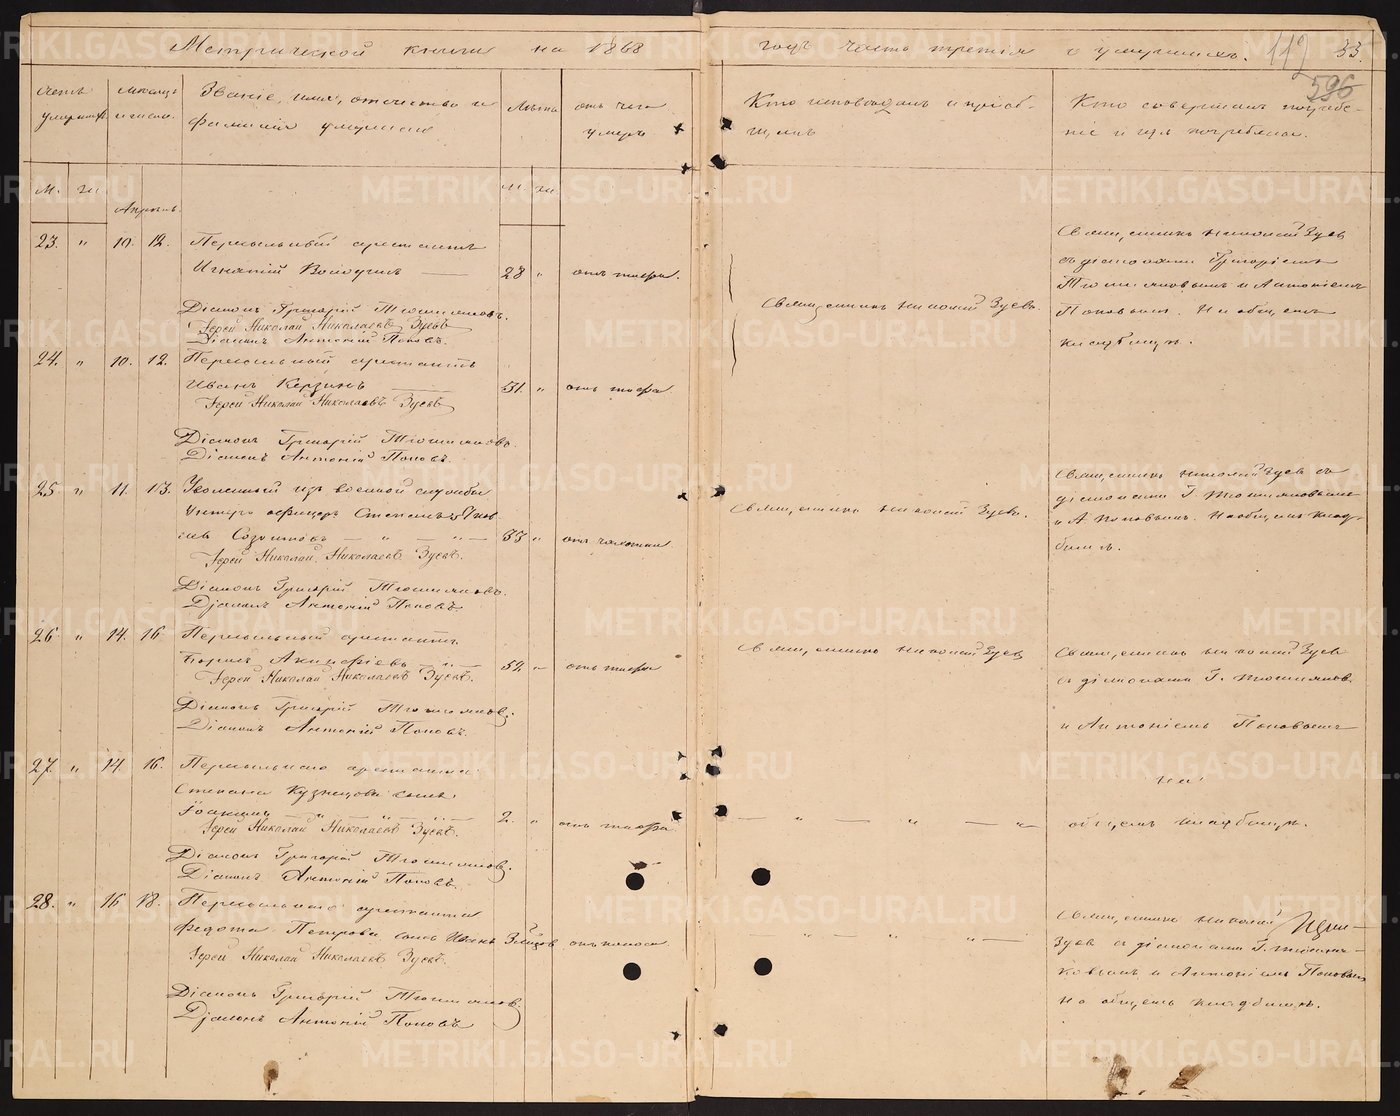 Метрической книги на 1868
годъ часть третія о умершихъ. 112 33.
596
Счетъ умершихъ.
Мѣсяцъ и число.
Званіе, имя, отчество и
фамилія умершаго
Лѣта
отъ чего
умеръ
Кто исповѣдалъ и пріоб-
щилъ
Кто совершалъ погребе-
ніе и гдѣ погребены.
М. Ж.
Апрѣль.
М. Ж.
23. " 10. 12. Пересыльный арестантъ
Игнатій — 28 " отъ тифа.
Діаконъ Григорій Тюшняковъ.
Іерей Николай Николаевъ Зуевъ
Діаконъ Антоній Поповъ.
Священникъ Николай Зуевъ.
Священникъ Николай Зуевъ
съ діаконами Григоріемъ
Тюшняковымъ и Антоніемъ
Поповымъ. На общемъ
кладбищѣ.
24. " 10. 12. Пересыльный арестантъ
Иванъ Керзинъ — 51. " отъ тифа
Іерей Николай Николаевъ Зуевъ
Діаконъ Григорій Тюшняковъ.
Діаконъ Антоній Поповъ.
25. " 11. 13. Уволенный изъ военной службы
Унтеръ офицеръ Степанъ Яков
левъ Созоновъ — " — " — 33 " отъ чахотки.
Іерей Николай Николаевъ Зуевъ.
Діаконъ Григорій Тюшняковъ.
Діаконъ Антоній Поповъ
Священникъ Николай Зуевъ.
Священникъ Николай Зуевъ съ
діаконами Г. Тюшняковымъ
и А. Поповымъ. На общемъ клад-
бищѣ.
26. " 14. 16. Пересыльный арестантъ
Борисъ Акинфіевъ " — 52 " отъ тифа
Іерей Николай Николаевъ Зуевъ.
Діаконъ Григорій Тюшняковъ.
Діаконъ Антоній Поповъ.
Священникъ Николай Зуевъ
Священникъ Николай Зуевъ
съ діаконами Г. Тюшняков.
и Антоніемъ Поповымъ
27. " 14. 16. Пересыльнаго арестанта
Степана Кузнецова сынъ
Іоакимъ — " — " — 2. " отъ тифа
Іерей Николай Николаевъ Зуевъ.
Діаконъ Григорій Тюшняковъ.
Діаконъ Антоній Поповъ.
— " — " — "
на
общемъ кладбищѣ.
28. " 16 18. Пересыльнаго арестанта
Федота Петрова сынъ Иванъ отъ поноса
Іерей Николай Николаевъ Зуевъ.
Діаконъ Григорій Тюшняковъ.
Діаконъ Антоній Поповъ
— " — " — "
Священникъ Николай
Зуевъ съ діаконами Г. Тюшня-
ковымъ и Антоніемъ Поповымъ
На общемъ кладбищѣ.
METRIKI.GASO-URAL.RU